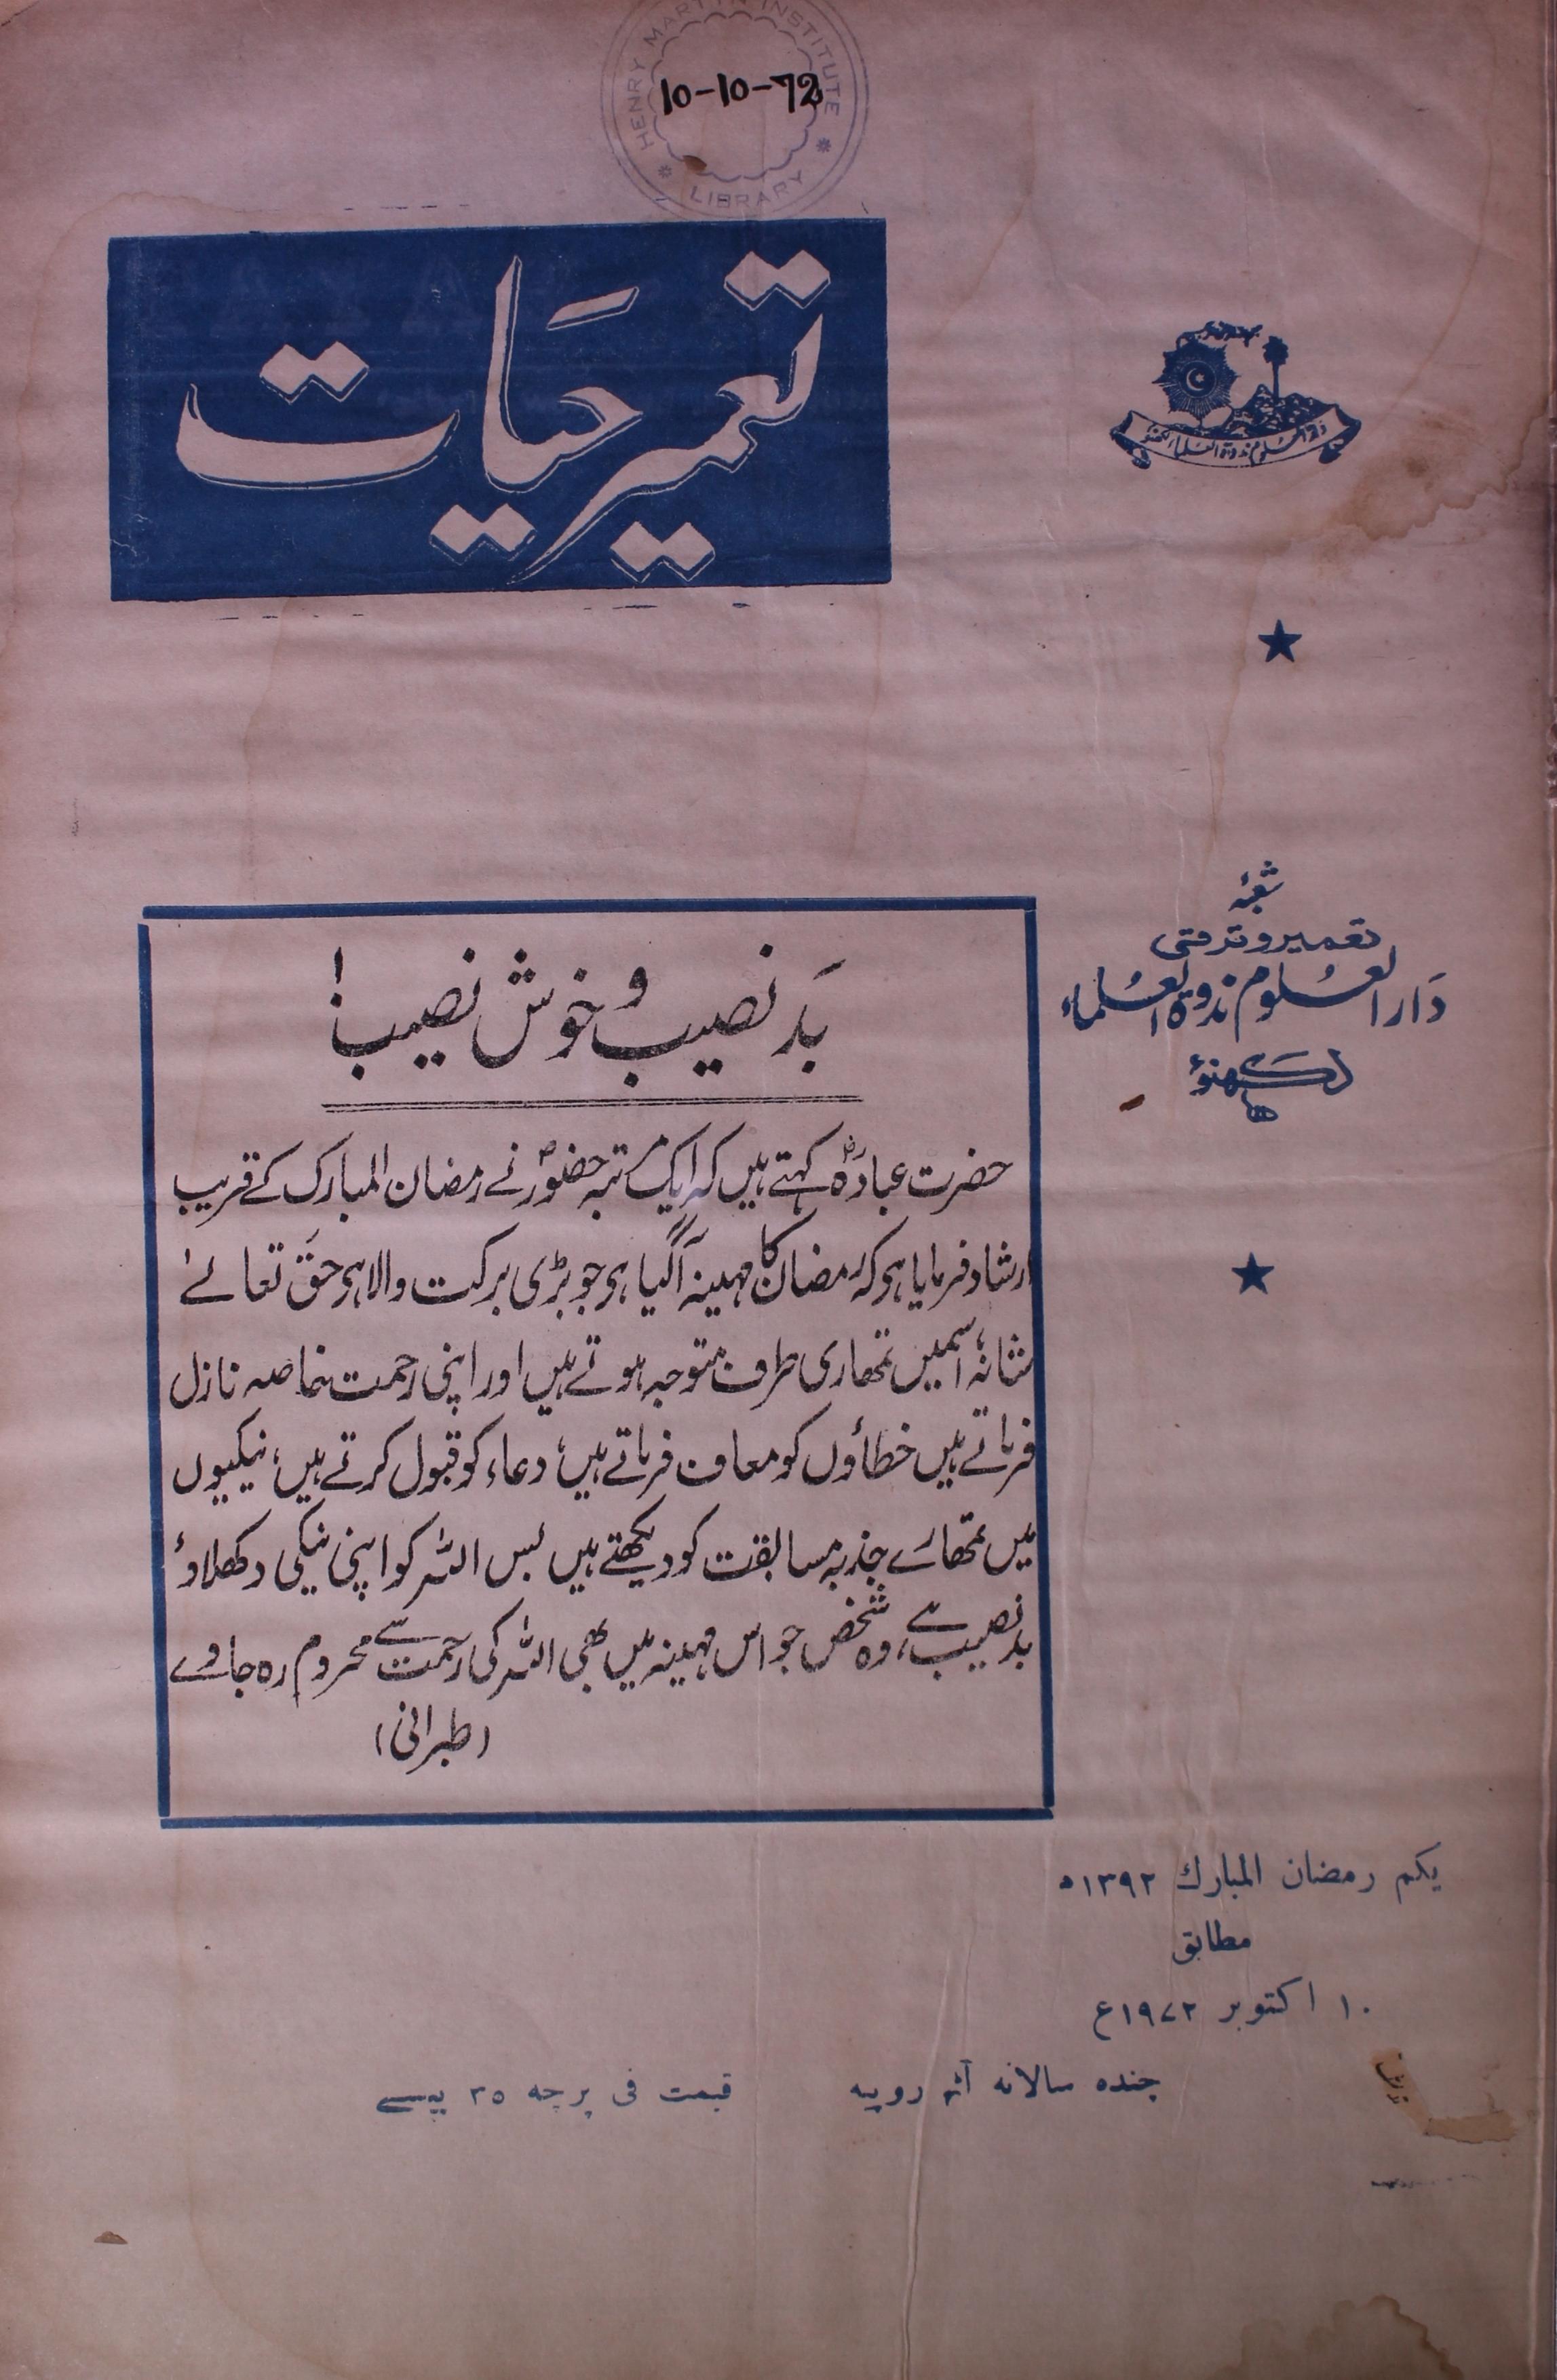 HENRY MARTYN INSTITUTE
10-10-72
LIBRARY
تعمیر حیات
دارالعلوم ندوۃ العلماء لکھنؤ
شعبۂ
تعمیر و ترقی
دارالعلوم ندوۃ العلماء
لکھنؤ
بد نصیب و خوش نصیب!
حضرت عبادہؓ کہتے ہیں کہ ایک مرتبہ حضورؐ نے رمضان المبارک کے قریب
ارشاد فرمایا ہو کہ رمضان کا مہینہ آگیا ہو جو بڑی برکت والا ہو حق تعالےٰ
شانہٗ اسمیں تمھاری طرف متوجہ ہوتے ہیں اور اپنی رحمت خاصہ نازل
فرماتے ہیں خطاؤں کو معاف فرماتے ہیں، دعاء کو قبول کرتے ہیں، نیکیوں
میں تمھارے جذبہ مسابقت کو دیکھتے ہیں بس اللہ کو اپنی نیکی دکھلاؤ
بدنصیب ہے، وہ شخص جو اس مہینہ میں بھی اللہ کی رحمت سے محروم رہ جاوے
(طبرانی)
یکم رمضان المبارك ۱۳۹۲ھ
مطابق
۱۰ اکتوبر ۱۹۷۲ع
چندہ سالانہ آٹھ روپیہ قیمت فی پرچہ ۳۵ پیسے